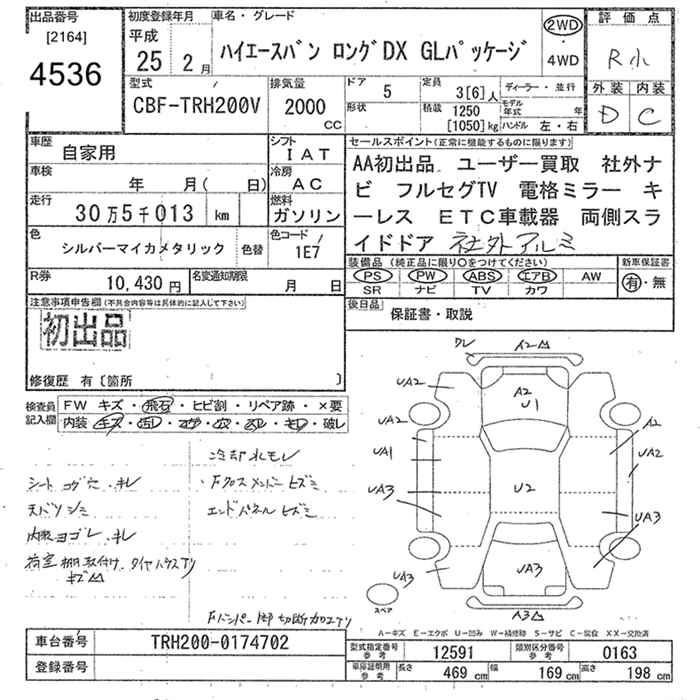 出品番号
[2164]
4536
初度登録年月
平成
25 2月
車名・グレード
ハイエースバン ロングDX GLパッケージ
2WD
・
4WD
評価点
R小
外装 内装
D C
型式
CBF-TRH200V
排気量
2000
CC
ドア
5
形状
定員
3[6]人
積載
1250
[1050]kg
ディーラー・並行
モデル年式 年
ハンドル 左・右
車歴
自家用
シフト
IAT
車検
年 月( 日)
冷房
AC
走行
30万5千013 km
燃料
ガソリン
色
シルバーマイカメタリック
色替
色コード
1E7
R券
10,430円
名変通知期限
月 日
セールスポイント(正常に機能するものに限ります)
AA初出品 ユーザー買取 社外ナ
ビ フルセグTV 電格ミラー キ
ーレス ETC車載器 両側スラ
イドドア 社外アルミ
装備品(純正品に限り○をつけてください)
PS PW ABS エアB AW
SR ナビ TV カワ
新車保証書
有・無
後日品
保証書・取説
注意事項申告欄(不具合内容等は具体的に記入して下さい)
初出品
修復歴 有〔箇所 〕
検査員記入欄
FW キズ・飛石・ヒビ割・リペア跡・×要
内装・キズ・ヨゴレ・コゲ・穴・スレ・キレ・破レ
冷却水モレ
シート コゲ穴・キレ
・Fクロスメンバー ヒズミ
天バリ シミ
エンドパネル ヒズミ
内張ヨゴレ・キレ
荷室 棚取付け・タイヤハウスアリ
キズ△
Fバンパー脚 切断加工アリ
クレ
A2△
UA2
A2
U1
UA2
A2
UA1
UA2
UA3
U2
UA3
UA3
UA3
A3△
スペア
A-キズ E-エクボ U-凹み W-補修跡 S-サビ C-腐食 XX-交換済
車台番号
TRH200-0174702
登録番号
型式指定番号
参考
12591
類別区分番号
参考
0163
車庫証明用
参考
長さ
469 cm
幅
169 cm
高さ
198 cm